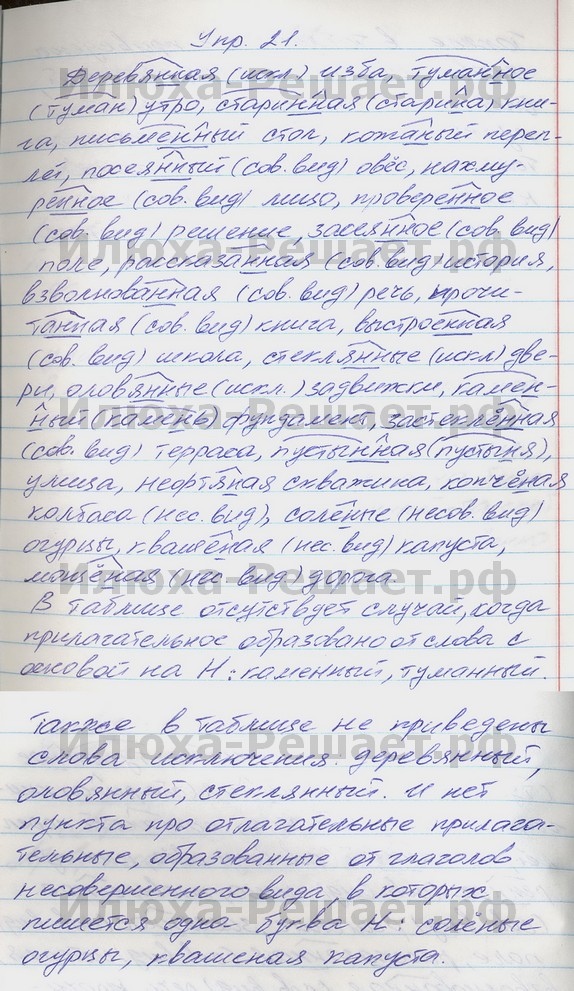 Упр. 21.
Деревянная (искл) изба, туманное
(туман) утро, старинная (старина) кни-
га, письменный стол, кожаный переп-
лёт, посеянный (сов. вид) овёс, нахму-
ренное (сов. вид) лицо, проверенное
(сов. вид) решение, засеянное (сов. вид)
поле, рассказанная (сов. вид) история,
взволнованная (сов. вид) речь, прочи-
танная (сов. вид) книга, выстроенная
(сов. вид) школа, стеклянные (искл) две-
ри, оловянные (искл.) задвижки, камен-
ный (камень) фундамент, застеклённая
(сов. вид) терраса, пустынная (пустыня),
улица, нефтяная скважина, копчёная
колбаса (нес. вид), солёные (несов. вид)
огурцы, квашеная (нес. вид) капуста,
мощёная (нес. вид) дорога.
В таблице отсутствует случай, когда
прилагательное образовано от слова с
основой на Н: каменный, туманный.
Также в таблице не приведены
слова исключения: деревянный,
оловянный, стеклянный. И нет
пункта про отлагательные прилага-
тельные, образованные от глаголов
несовершенного вида, в которых
пишется одна буква Н: солёные
огурцы, квашеная капуста.
Илюха-Решает.рф
Илюха-Решает.рф
Илюха-Решает.рф
Илюха-Решает.рф
Илюха-Решает.рф
Илюха-Решает.рф